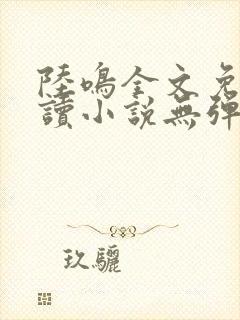 陸鳴全文免
讀小說無彈
玖驪